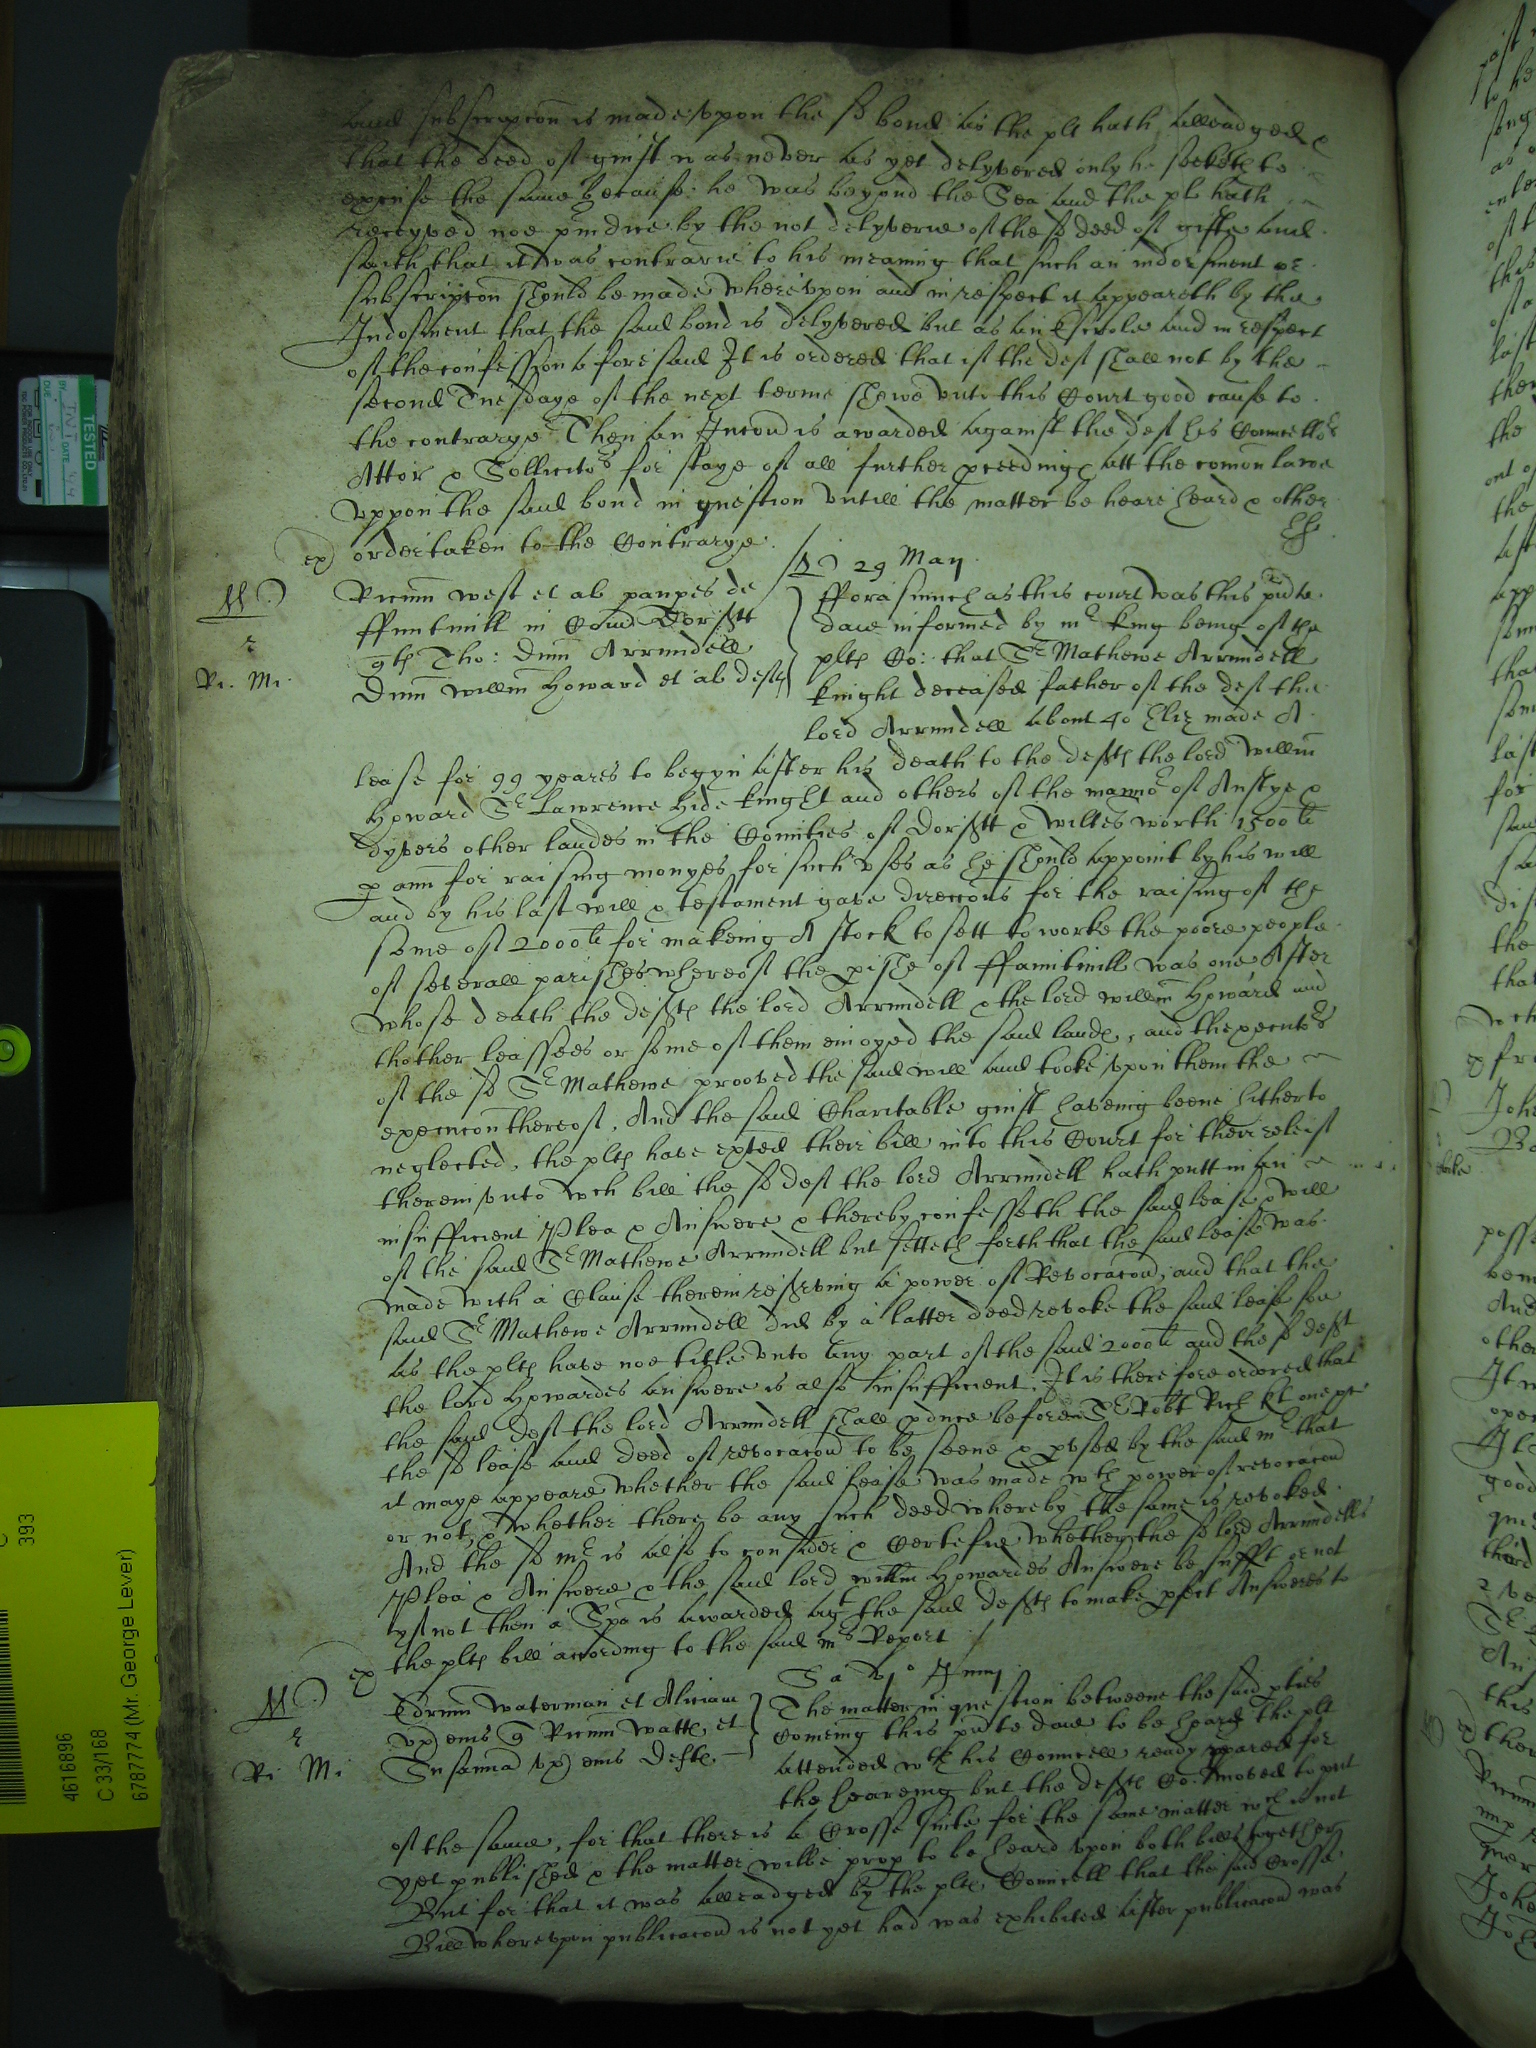 said subscripcon is made upon the sd bond as the plt hath alleadged &
that the deed of guift was never as yet delyvered only he seeketh to
excuse the same because he was beyond the Sea and the plt hath
receyved noe piudice by the not delyverie of the sd deed of gifte and
saith that it was contrarie to his meaning that such an indorsment or
subscripcon should be made whereupon and in respect it appeareth by the
Indosment that the said bond is delyvered but as an Escrole and in respect
of the confession aforesaid It is ordered that if the deft shall not by the
second Tuesdaye of the next terme shewe unto this Court good cause to
the contrarye Then an Iniuncon is awarded against the deft his Councello{rs}
Attor & Sollicitors for staye of all further pceedinges att the comon lawe
uppon the said bond in question untill the matter be heare heard & other
ex) order taken to the Contrarye
29 May
Ricum West et al paupes de
ffuntmill in Com Dorsett
Tho: Dnm Arrundell
Ri. Mi.
Dnm willm Howard et al defts
fforasmuch as this court was this pnte
daie informed by mr King being of the
plts Co: that Sr Mathewe Arrundell
knight deceased father of the deft the
lord Arrundell about 40 Eliz made A
lease for 99 yeares to begyn after his death to the defts the lord Willm
Howard Sr Lawrence Hide knight and others of the mannor of Anstye &
dyvers other landes in the Counties of Dorsett & Wiltes worth 1500li
p ann for raising monyes for such uses as he should appoint by his will
and by his last will & testament gave direccons for the raising of the
some of 2000li for makeing A stock to sett to worke the poore people
of severall parishes whereof the pishe of ffuntmill was one After
whose death the defts the lord Arrundell & the lord willm Howard and
thother leassees or some of them enioyed the said landes, and the executors
of the sd Sr Mathewe prooved the said will and tooke upon them the
execucon thereof, And the said Charitable guift haveing beene hitherto
neglected, the plts have exted their bill into this Court for their releif
therein unto wch bill the sd deft the lord Arrundell hath putt in an
insufficient Plea & Answere & thereby confesseth the said lease & will
of the said Sr Mathewe Arrundell but setteth forth that the said lease was
made with a Clause therein reserving a power of Revocacon, and that the
said Sr Mathewe Arrundell did by a latter deed revoke the said lease soe
as the plts have noe title unto any part of the said 2000li and the sd deft
the lord Howardes answere is also insufficient, It is therefore ordered that
the said deft the lord Arrundell shall pduce before Sr Robt Rich kt one
the sd lease and deed of revocacon to be seene & pused by the said mr that
it maye appeare whether the said lease was made wth power of revocacon
or not, & whether there be any such deed whereby the same is revoked
And the sd mr is also to consider & Certefie whether the sd lord Arrundells
Plea & Answere & the said lord willm Howardes Answere be sufft or not
yf not then a Spa is awarded agt the said defts to make pfect Answeres to
ex the plts bill according to the said mrs Report
Sa Iunij
Edrum waterman et Aliciam
ux) eius q Ricum Watts et
Ri Mi
Susanna ux) eius defts
The matter in question betweene the said pties
Comeing this pnte daie to be heard the plt
attended wth his Councell ready ppared for
the heareing but the defts Co: moved to put
of the same, for that there is a Crosse suite for the same matter wch is not
yet published & the matter wilbe prop to be heard upon both bills together
But for that it was alleadged by the plts Councell that the said Crosse
Bill whereupon publicacon is not yet had was exhibited after publicacon was
TESTED
393
4616896
C 33/168
6787774 (Mr. George Lever)